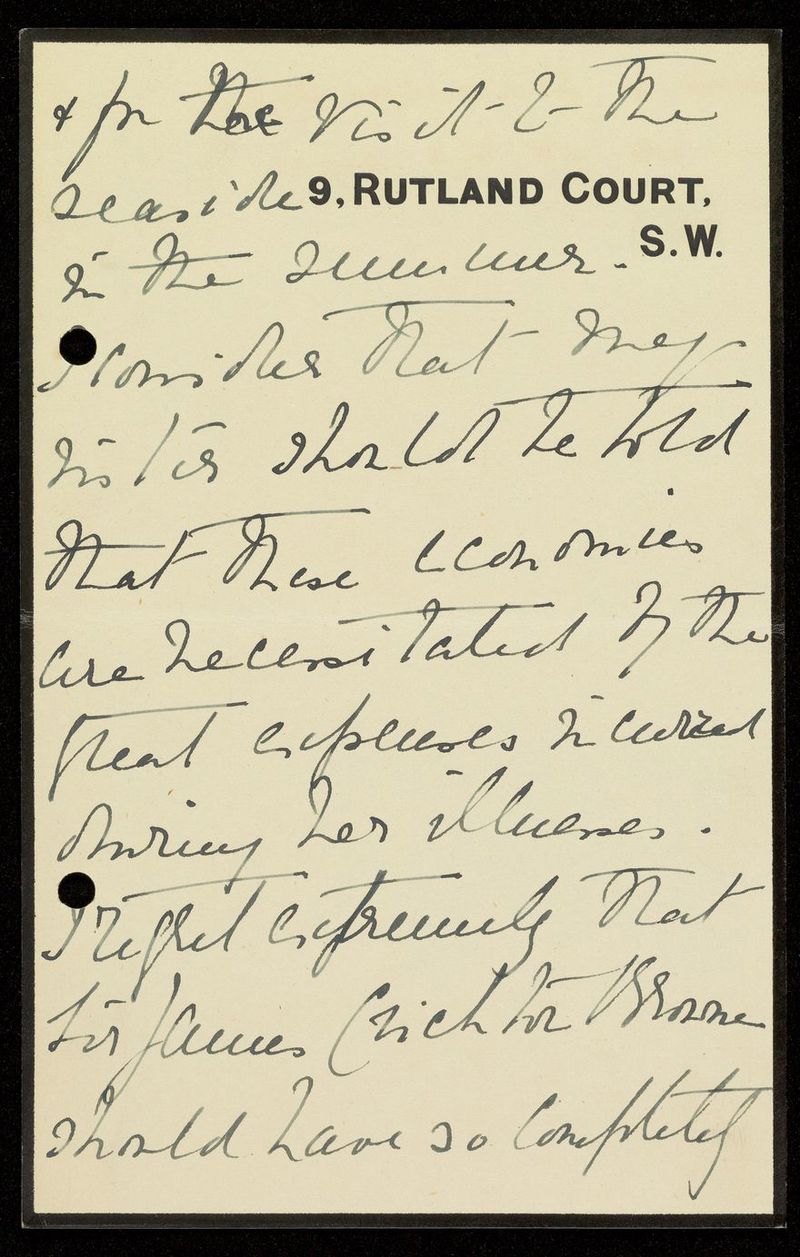 & for the visit to the
seaside 9, RUTLAND COURT,
S.W.
in the summer.
I consider that my
sister should be told
that these economies
are necessitated by the
great expenses incurred
during her illnesses.
I regret extremely that
Sir James Crichton Browne
should have so completely